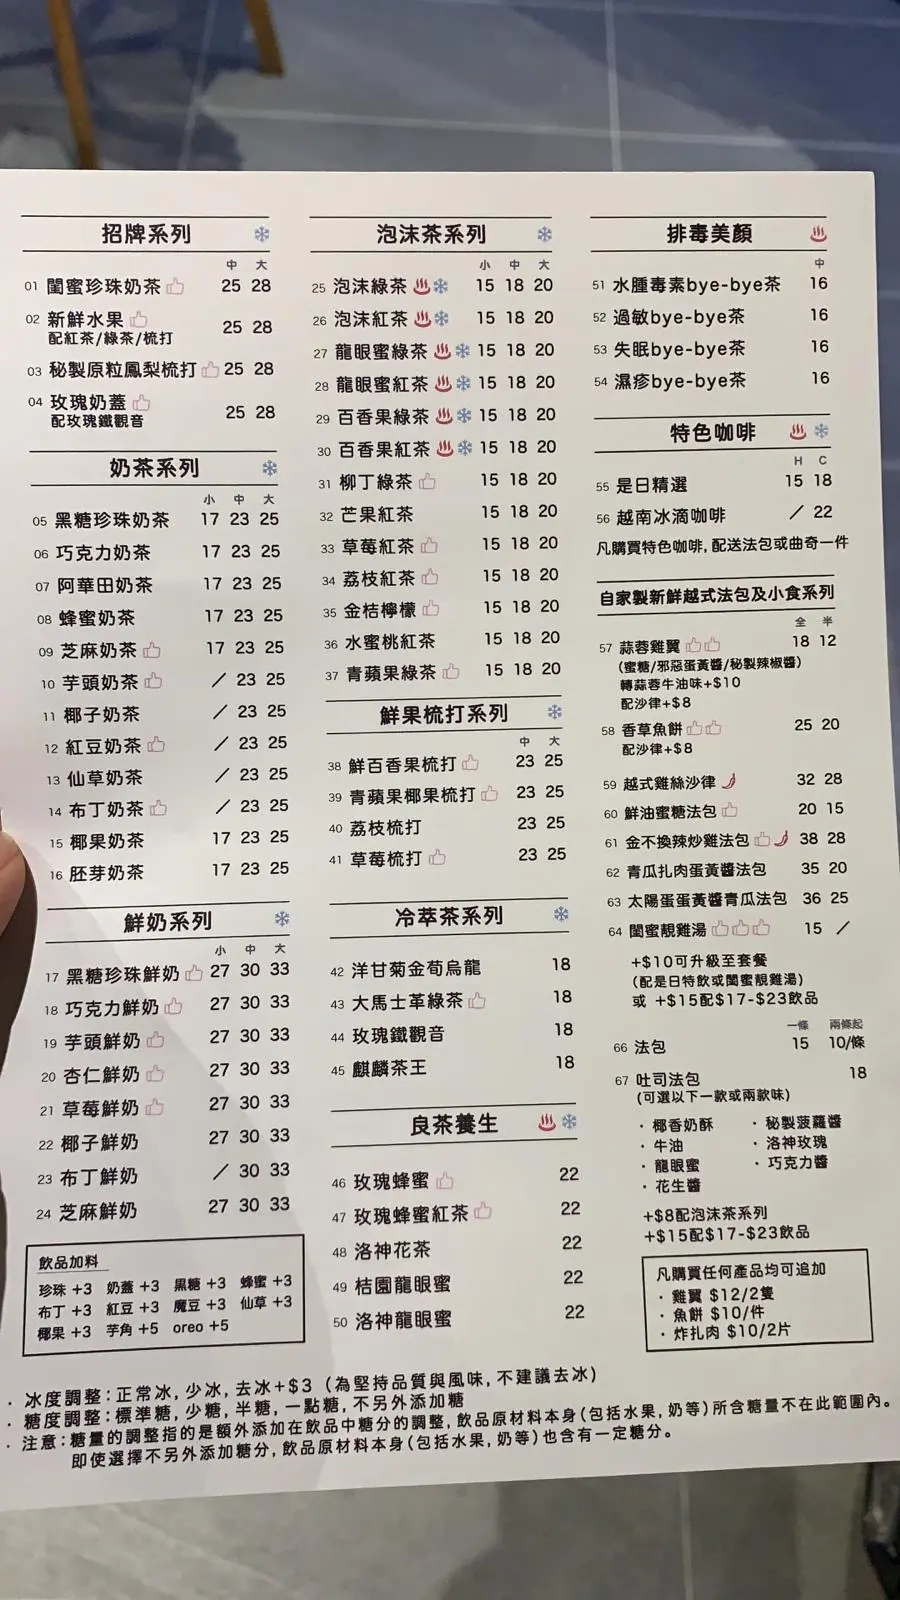 招牌系列
中 大
01 閨蜜珍珠奶茶 25 28
02 新鮮水果 25 28
配紅茶/綠茶/梳打
03 秘製原粒鳳梨梳打 25 28
04 玫瑰奶蓋 25 28
配玫瑰鐵觀音
奶茶系列
小 中 大
05 黑糖珍珠奶茶 17 23 25
06 巧克力奶茶 17 23 25
07 阿華田奶茶 17 23 25
08 蜂蜜奶茶 17 23 25
09 芝麻奶茶 17 23 25
10 芋頭奶茶 / 23 25
11 椰子奶茶 / 23 25
12 紅豆奶茶 / 23 25
13 仙草奶茶 / 23 25
14 布丁奶茶 / 23 25
15 椰果奶茶 17 23 25
16 胚芽奶茶 17 23 25
鮮奶系列
小 中 大
17 黑糖珍珠鮮奶 27 30 33
18 巧克力鮮奶 27 30 33
19 芋頭鮮奶 27 30 33
20 杏仁鮮奶 27 30 33
21 草莓鮮奶 27 30 33
22 椰子鮮奶 27 30 33
23 布丁鮮奶 / 30 33
24 芝麻鮮奶 27 30 33
飲品加料
珍珠 +3 奶蓋 +3 黑糖 +3 蜂蜜 +3
布丁 +3 紅豆 +3 魔豆 +3 仙草 +3
椰果 +3 芋角 +5 oreo +5
泡沫茶系列
小 中 大
25 泡沫綠茶 15 18 20
26 泡沫紅茶 15 18 20
27 龍眼蜜綠茶 15 18 20
28 龍眼蜜紅茶 15 18 20
29 百香果綠茶 15 18 20
30 百香果紅茶 15 18 20
31 柳丁綠茶 15 18 20
32 芒果紅茶 15 18 20
33 草莓紅茶 15 18 20
34 荔枝紅茶 15 18 20
35 金桔檸檬 15 18 20
36 水蜜桃紅茶 15 18 20
37 青蘋果綠茶 15 18 20
鮮果梳打系列
中 大
38 鮮百香果梳打 23 25
39 青蘋果椰果梳打 23 25
40 荔枝梳打 23 25
41 草莓梳打 23 25
冷萃茶系列
42 洋甘菊金萄烏龍 18
43 大馬士革綠茶 18
44 玫瑰鐵觀音 18
45 麒麟茶王 18
良茶養生
46 玫瑰蜂蜜 22
47 玫瑰蜂蜜紅茶 22
48 洛神花茶 22
49 桔園龍眼蜜 22
50 洛神龍眼蜜 22
排毒美顏
中
51 水腫毒素bye-bye茶 16
52 過敏bye-bye茶 16
53 失眠bye-bye茶 16
54 濕疹bye-bye茶 16
特色咖啡
H C
55 是日精選 15 18
56 越南冰滴咖啡 / 22
凡購買特色咖啡, 配送法包或曲奇一件
自家製新鮮越式法包及小食系列
全 半
57 蒜蓉雞翼 18 12
(蜜糖/邪惡蛋黃醬/秘製辣椒醬)
轉蒜蓉牛油味+$10
配沙律+$8
58 香草魚餅 25 20
配沙律+$8
59 越式雞絲沙律 32 28
60 鮮油蜜糖法包 20 15
61 金不換辣炒雞法包 38 28
62 青瓜扎肉蛋黃醬法包 35 20
63 太陽蛋蛋黃醬青瓜法包 36 25
64 閨蜜靚雞湯 15 /
+$10可升級至套餐
(配是日特飲或閨蜜靚雞湯)
或 +$15配$17-$23飲品
一條 兩條起
66 法包 15 10/條
67 吐司法包 18
(可選以下一款或兩款味)
· 椰香奶酥 · 秘製菠蘿醬
· 牛油 · 洛神玫瑰
· 龍眼蜜 · 巧克力醬
· 花生醬
+$8配泡沫茶系列
+$15配$17-$23飲品
凡購買任何產品均可追加
· 雞翼 $12/2隻
· 魚餅 $10/件
· 炸扎肉 $10/2片
· 冰度調整:正常冰, 少冰, 去冰+$3 (為堅持品質與風味, 不建議去冰)
· 糖度調整:標準糖, 少糖, 半糖, 一點糖, 不另外添加糖
· 注意:糖量的調整指的是額外添加在飲品中糖分的調整, 飲品原材料本身(包括水果, 奶等)所含糖量不在此範圍內。
即使選擇不另外添加糖分, 飲品原材料本身(包括水果, 奶等)也含有一定糖分。